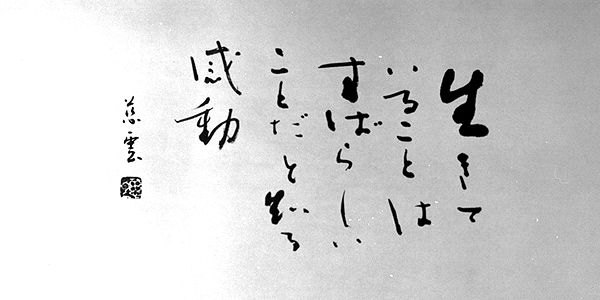 生きて
いることは
すばらしい
ことだと知る
感動
慈雲